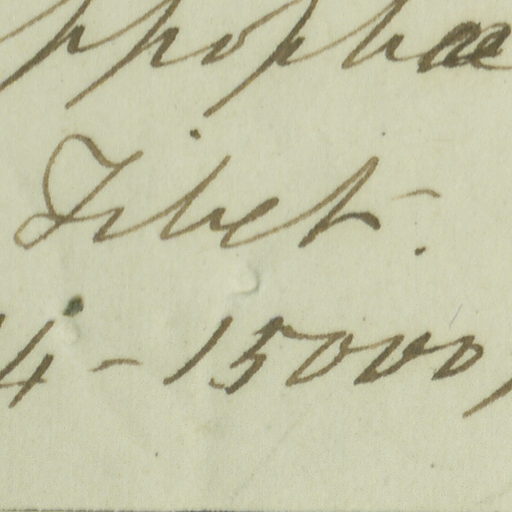 ppophae
Tibet.
14-15000,